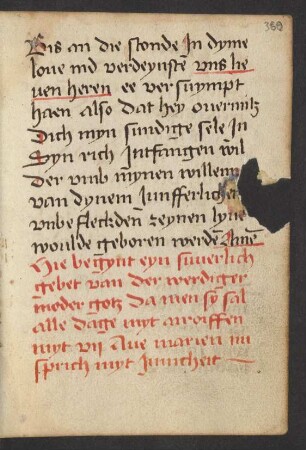 369
Bis an die stonde In dyme
loue ind verdeynste vns he
ren heren ee ver suympt
haen Also dat hey ouermitz
Dich myn sundige sele In
Syn rich Intfangen wil
Der vmb mynen willem
van dynem Iunfferlichen
vnbefleckden reynen lyue
woulde geboren werde Ame
Hie begynt eyn suuerlich
gebet van der werdiger
moder gotz Da men sy sal
alle dage myt anroiffen
myt vij Aue marien Nu
sprich myt Innicheit